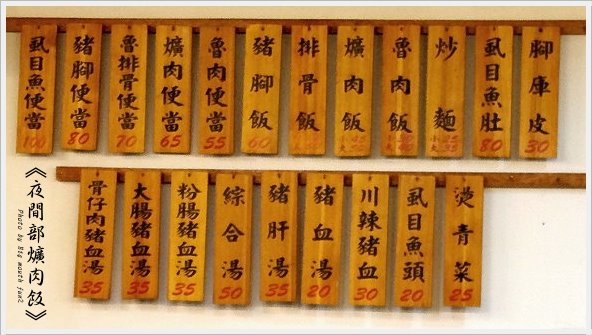 虱目魚便當 100
豬腳便當 80
魯排骨便當 70
爌肉便當 65
魯肉便當 55
豬腳飯 60
排骨飯
爌肉飯
魯肉飯
炒麵
虱目魚肚 80
腳庫皮 30
骨仔肉豬血湯 35
大腸豬血湯 35
粉腸豬血湯 35
綜合湯 50
豬肝湯 35
豬血湯 20
川辣豬血 30
虱目魚頭 20
燙青菜 25
《夜間部爌肉飯》
Photo by Big mouth fun2